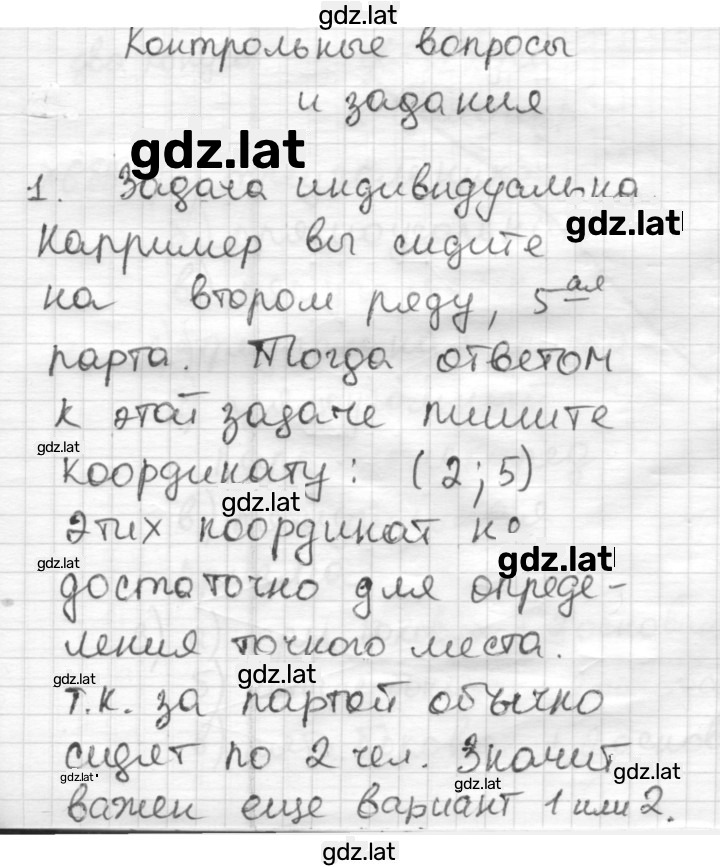 gdz.lat
Контрольные вопросы
и задания
gdz.lat
1. Задача индивидуальна
gdz.lat
Например вы сидите
на втором ряду, 5ая
парта. Тогда ответом
к этой задаче пишите
gdz.lat
координату: (2; 5)
gdz.lat
Этих координат не
gdz.lat
gdz.lat
достаточно для опреде-
ления точного места.
gdz.lat
gdz.lat
т.к. за партой обычно
сидят по 2 чел. Значит
gdz.lat
gdz.lat
gdz.lat
важен еще вариант 1 или 2.
gdz.lat